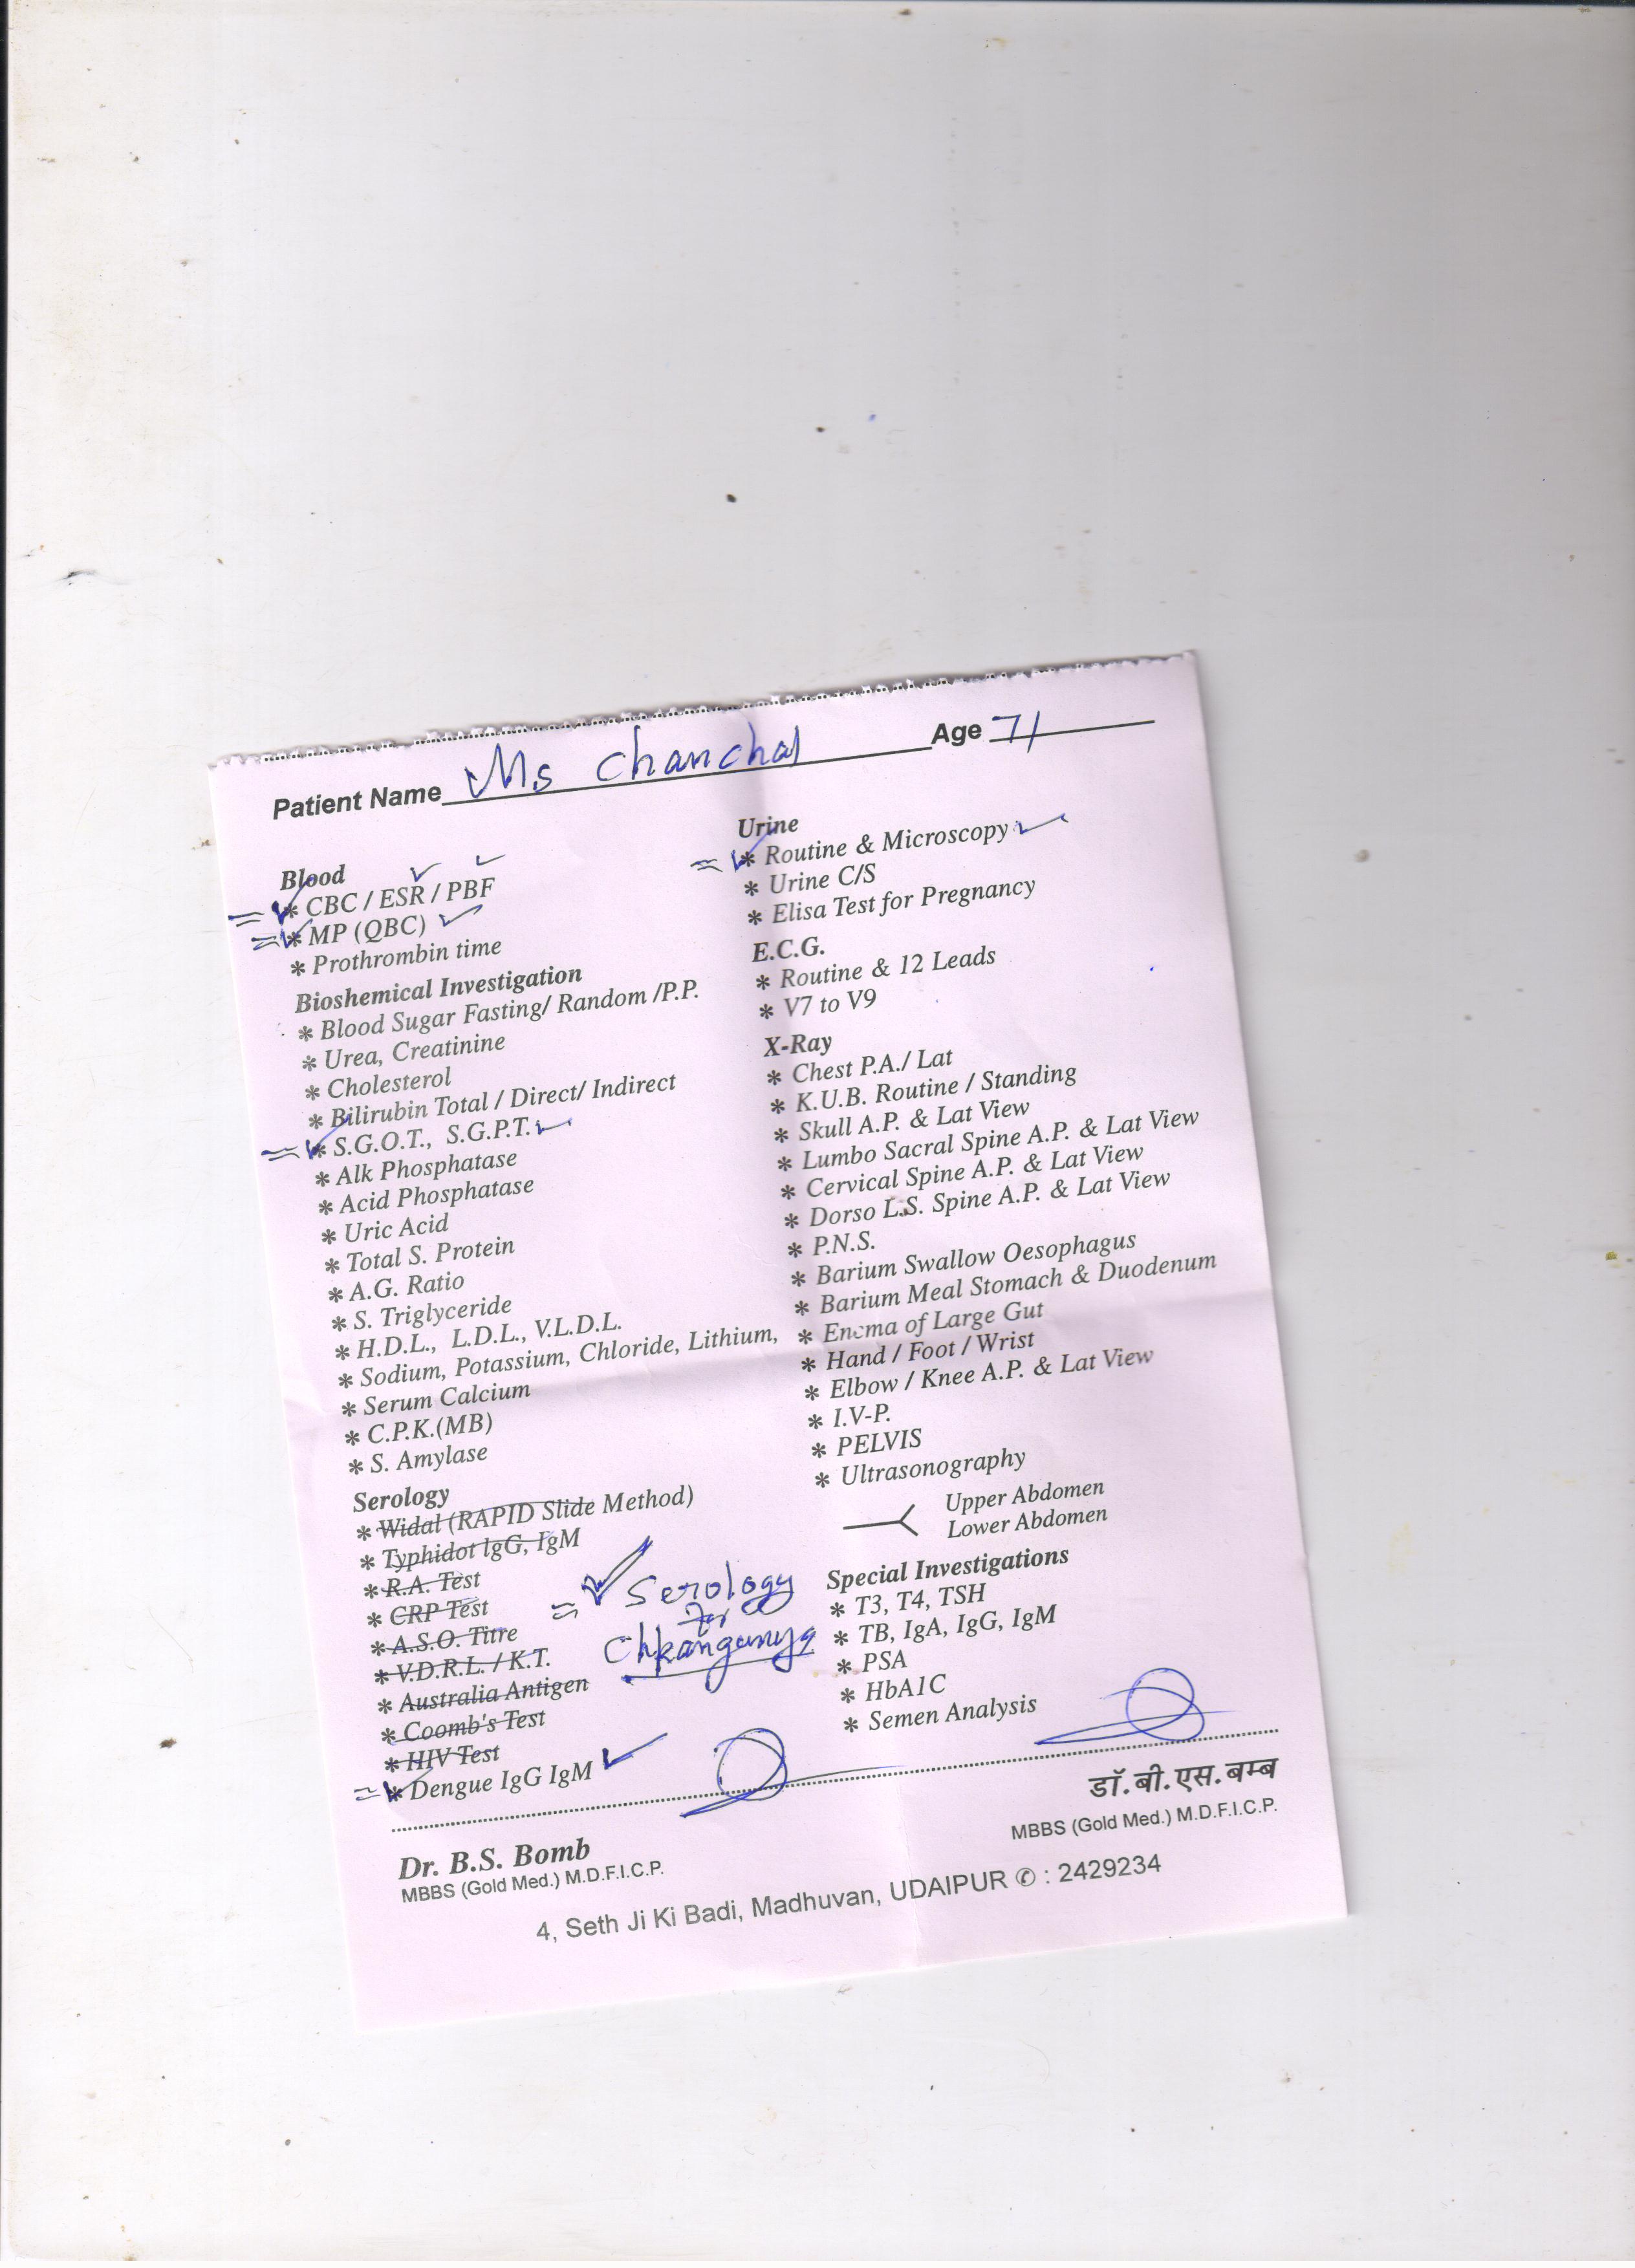 Patient Name Ms Chanchal Age 71
Blood
* CBC / ESR / PBF
* MP (QBC)
* Prothrombin time
Bioshemical Investigation
* Blood Sugar Fasting/ Random /P.P.
* Urea, Creatinine
* Cholesterol
* Bilirubin Total / Direct/ Indirect
* S.G.O.T., S.G.P.T.
* Alk Phosphatase
* Acid Phosphatase
* Uric Acid
* Total S. Protein
* A.G. Ratio
* S. Triglyceride
* H.D.L., L.D.L., V.L.D.L.
* Sodium, Potassium, Chloride, Lithium,
* Serum Calcium
* C.P.K.(MB)
* S. Amylase
Serology
* Widal (RAPID Slide Method)
* Typhidot IgG, IgM
* R.A. Test
* CRP Test
* A.S.O. Titre
* V.D.R.L. / K.T.
* Australia Antigen
* Coomb's Test
* HIV Test
* Dengue IgG IgM
Serology
for
Urine
* Routine & Microscopy
* Urine C/S
* Elisa Test for Pregnancy
E.C.G.
* Routine & 12 Leads
* V7 to V9
X-Ray
* Chest P.A./ Lat
* K.U.B. Routine / Standing
* Skull A.P. & Lat View
* Lumbo Sacral Spine A.P. & Lat View
* Cervical Spine A.P. & Lat View
* Dorso L.S. Spine A.P. & Lat View
* P.N.S.
* Barium Swallow Oesophagus
* Barium Meal Stomach & Duodenum
* Enema of Large Gut
* Hand / Foot / Wrist
* Elbow / Knee A.P. & Lat View
* I.V-P.
* PELVIS
* Ultrasonography
Upper Abdomen
Lower Abdomen
Special Investigations
* T3, T4, TSH
* TB, IgA, IgG, IgM
* PSA
* HbA1C
* Semen Analysis
Dr. B.S. Bomb
MBBS (Gold Med.) M.D.F.I.C.P.
डॉ. बी. एस. बम्ब
MBBS (Gold Med.) M.D.F.I.C.P.
4, Seth Ji Ki Badi, Madhuvan, UDAIPUR ✆ : 2429234